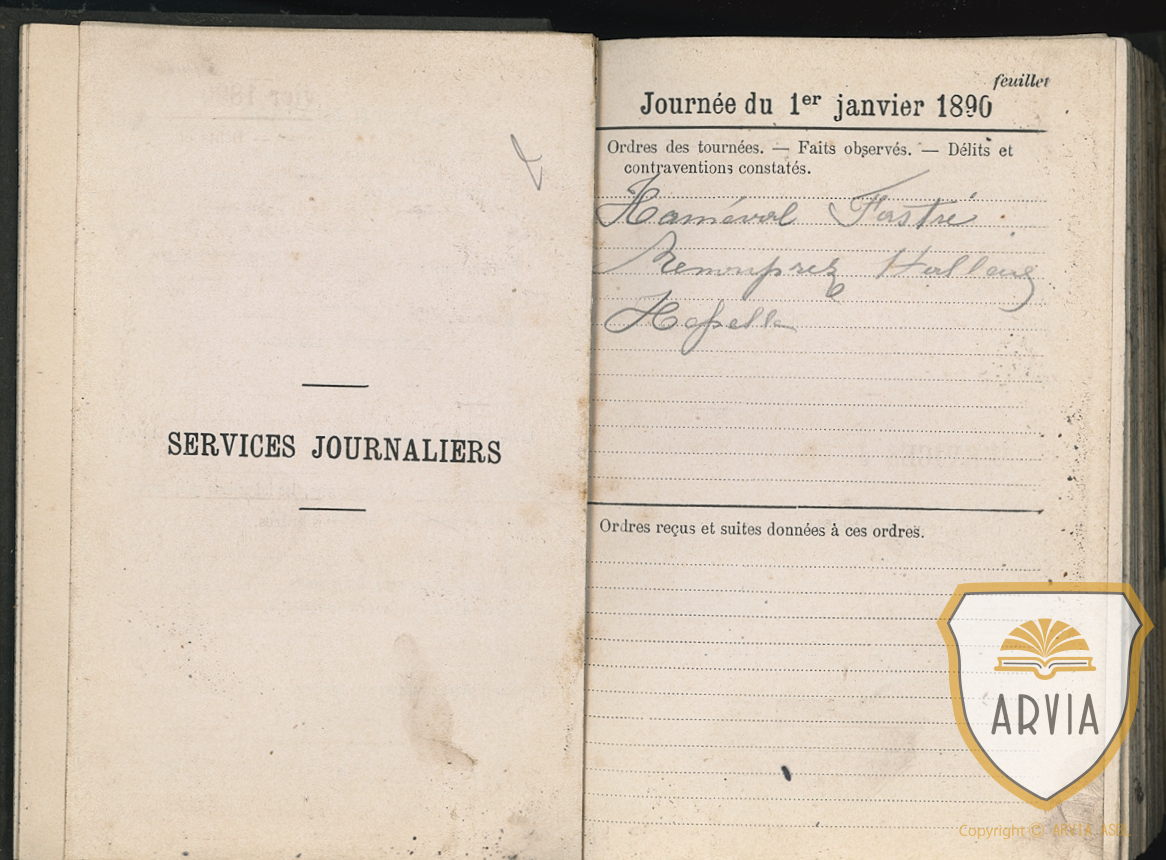 SERVICES JOURNALIERS
feuillet
Journée du 1er janvier 1890
Ordres des tournées. — Faits observés. — Délits et
contraventions constatés.
Haméval Fastré
Remouprez
Ordres reçus et suites données à ces ordres.
ARVIA
Copyright © ARVIA ASBL